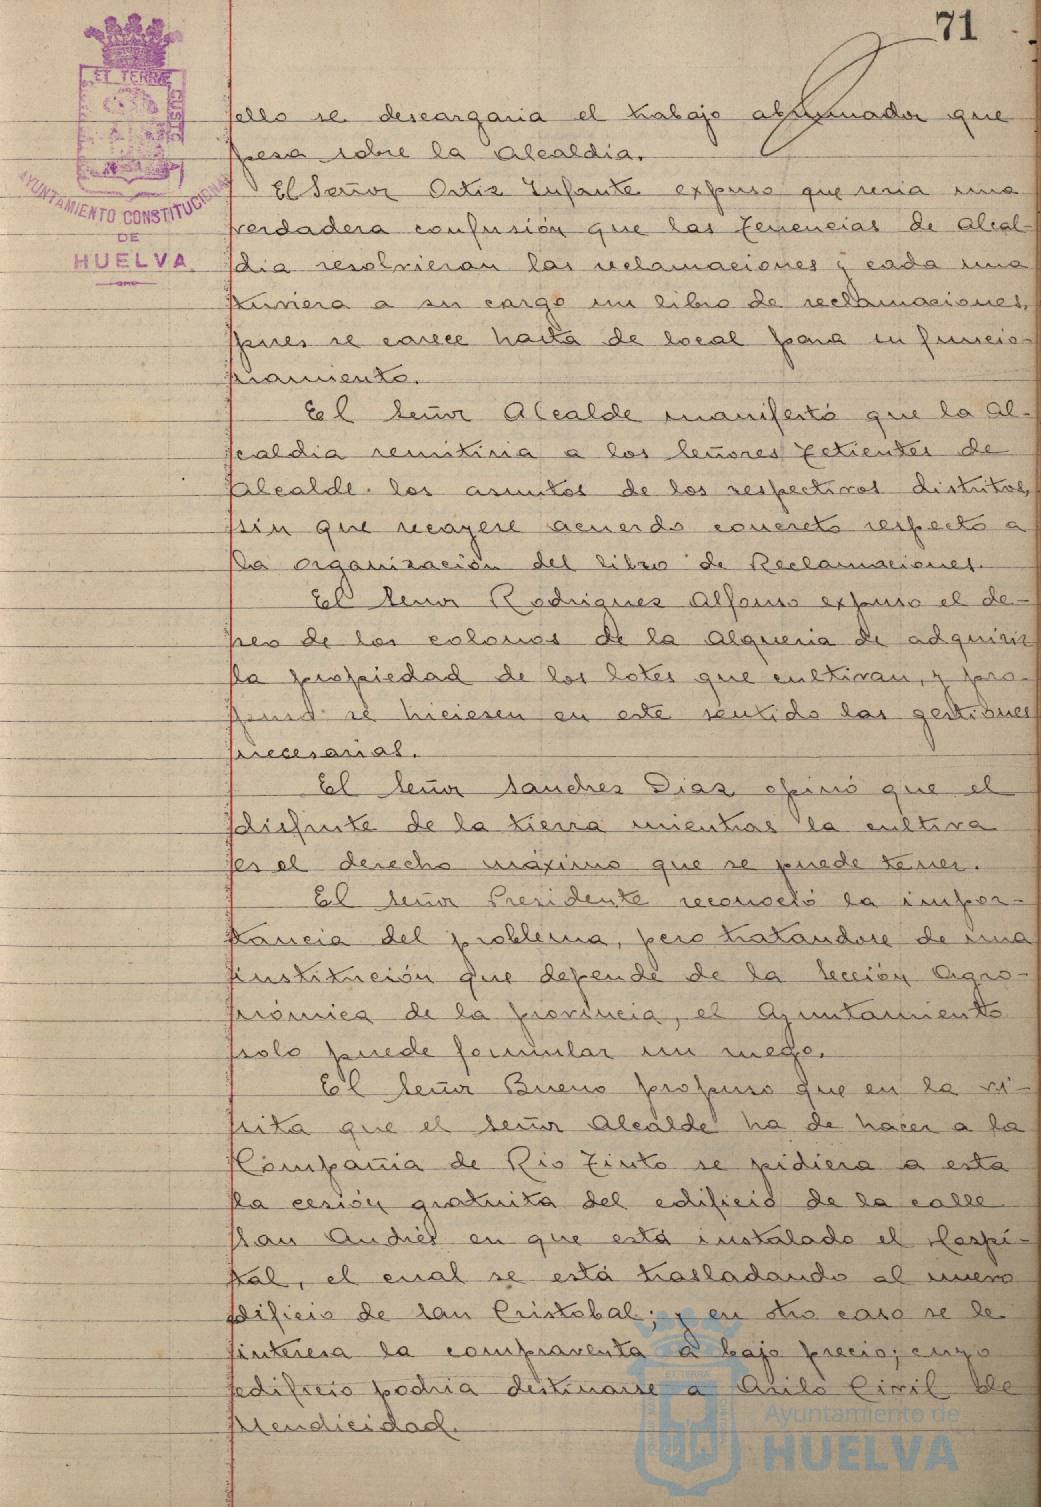 71
ET TERRÆ
CUSTO
AYUNTAMIENTO CONSTITUCIONAL
DE
HUELVA
ello se descargaria el trabajo abrumador que
pesa sobre la Alcaldía.
El Señor Ortiz Infante expuso que seria una
verdadera confusión que las Tenencias de Alcal-
dia resolvieran las reclamaciones y cada una
tuviera a su cargo un libro de reclamaciones,
pues se carece hasta de local para su funcio-
namiento.
El Señor Alcalde manifestó que la Al-
caldia remitiria a los Señores Tetientes de
Alcalde los asuntos de los respectivos distritos,
sin que recayese acuerdo concreto respecto a
la organización del libro de Reclamaciones.
El Señor Rodriguez Alfonso expuso el de-
seo de los colonos de la Alqueria de adquirir
la propiedad de los lotes que cultivan, y pro-
puso se hiciesen en este sentido las gestiones
necesarias.
El Señor Sanchez Diaz opinó que el
disfrute de la tierra mientras la cultiva
es el derecho máximo que se puede tener.
El Señor Presidente reconoció la impor-
tancia del problema, pero tratandose de una
institución que depende de la Sección Agro-
nómica de la provincia, el Ayuntamiento
solo puede formular un ruego.
El Señor Bueno propuso que en la vi-
sita que el Señor Alcalde ha de hacer a la
Compañia de Rio Tinto se pidiera a esta
la cesión gratuita del edificio de la calle
San Andrés en que está instalado el Hospi-
tal, el cual se está trasladando al nuevo
edificio de San Cristobal; y en otro caso se le
interesa la compraventa a bajo precio; cuyo
edificio podria destinarse a Asilo Civil de
Mendicidad.
Ayuntamiento de
HUELVA